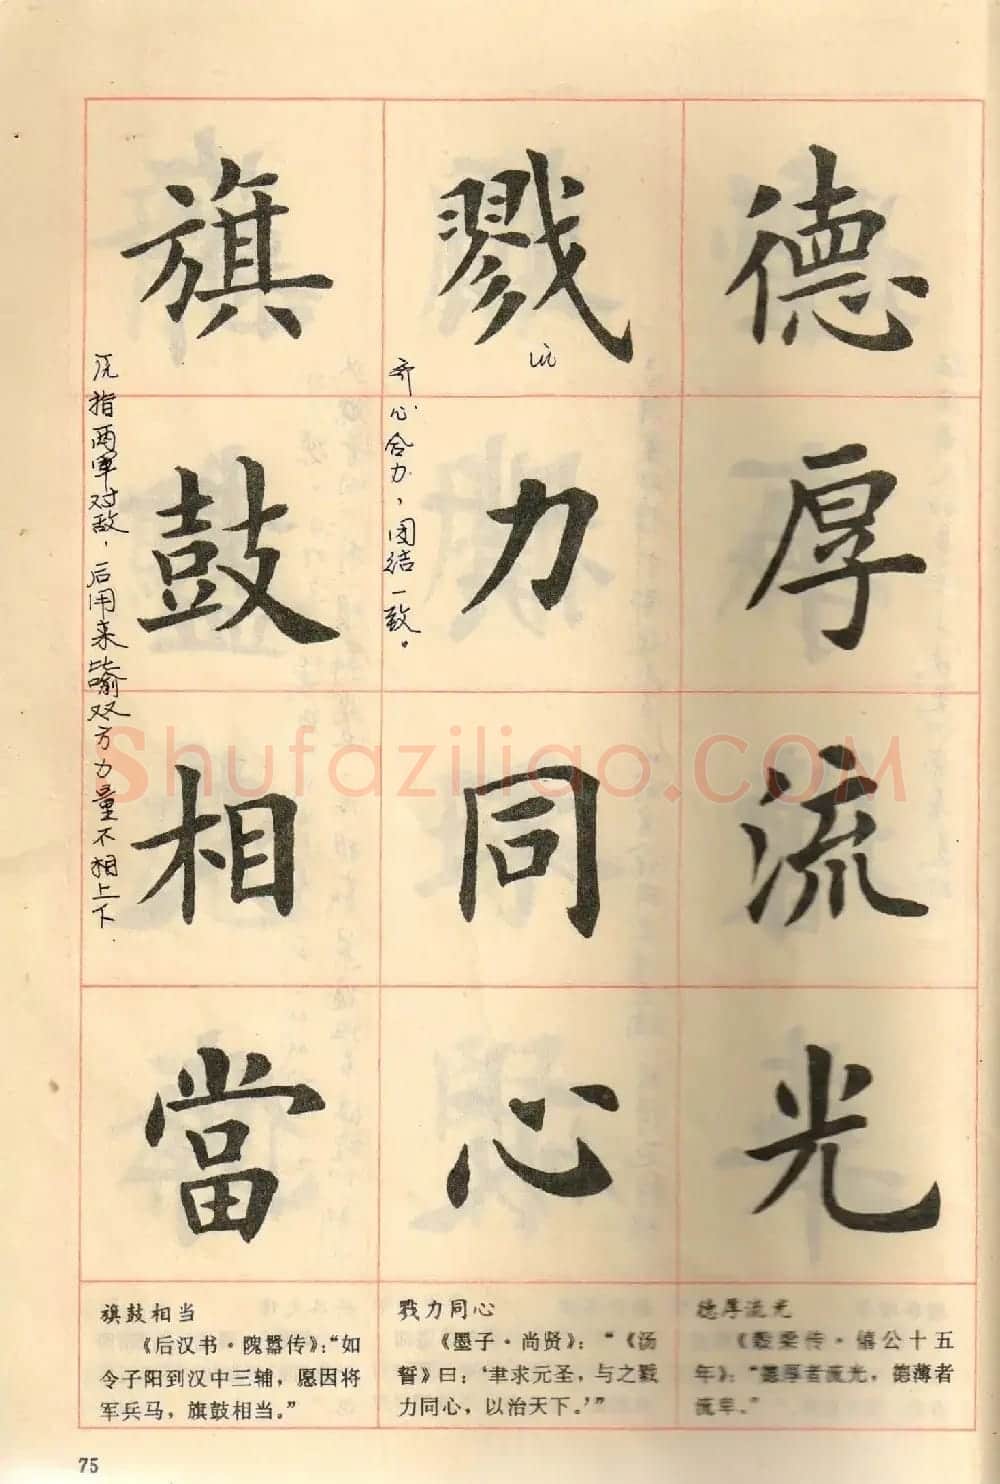 德厚流光
戮力同心
旗鼓相當
齐心合力，团结一致。
指两军对敌，后用来比喻双方力量不相上下
Shufaziliao.COM
德厚流光
《榖梁传·僖公十五
年》：“德厚者流光，德薄者
流卑。”
戮力同心
《墨子·尚贤》：“《汤
誓》曰：‘聿求元圣，与之戮
力同心，以治天下。’”
旗鼓相当
《后汉书·隗嚣传》：“如
令子阳到汉中三辅，愿因将
军兵马，旗鼓相当。”
75